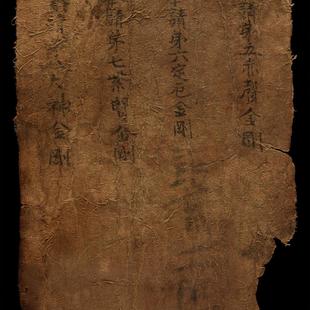 請第五赤聲金剛
請第六定厄金剛
請第七紫賢金剛
請第八大神金剛